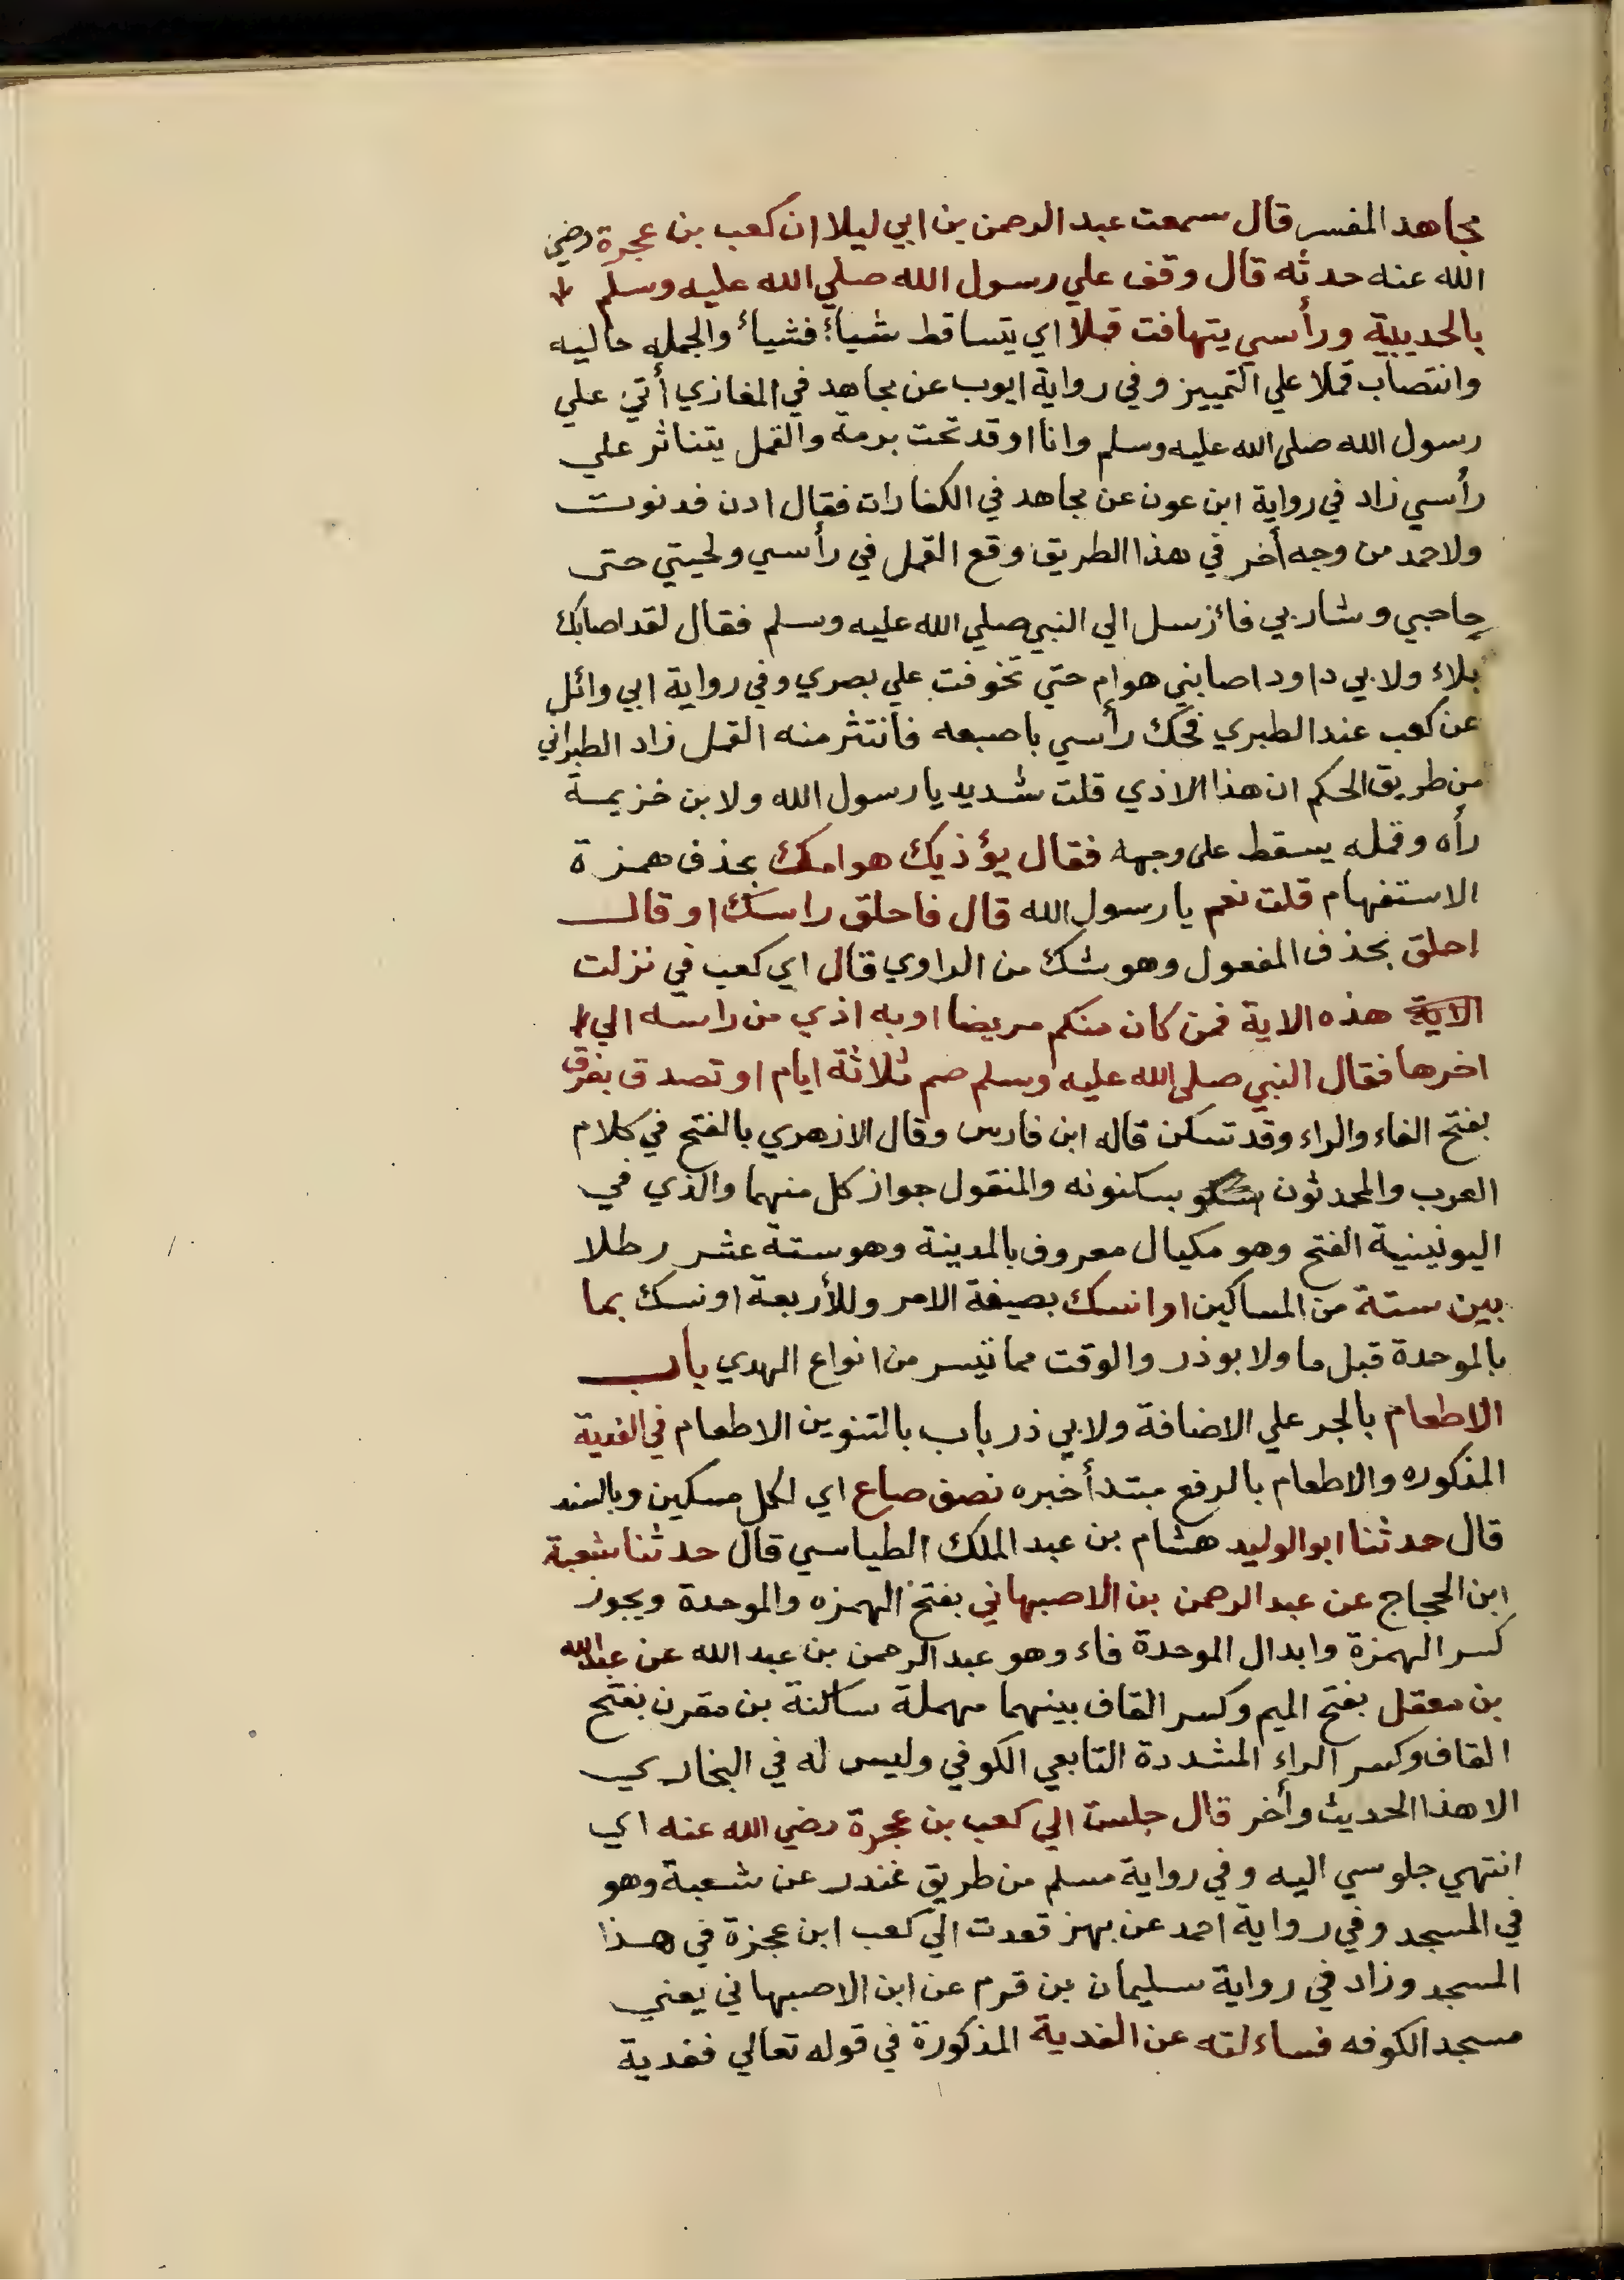 مجاهد المفسر قال سمعت عبد الرحمن بن ابي ليلا ان كعب بن عجرة رضي
الله عنه حدثه قال وقف علي رسول الله صلي الله عليه وسلم
بالحديبية ورأسي يتهافت قملا اي يتساقط شيأ فشيأ والجمله حاليه
وانتصاب قملا علي التمييز وفي رواية ايوب عن مجاهد في المغازي أتي علي
رسول الله صلي الله عليه وسلم وانا اوقد تحت برمة والقمل يتناثر علي
رأسي زاد في رواية ابن عون عن مجاهد في الكفارات فقال ادن فدنوت
ولاحمد من وجه أخر في هذا الطريق وقع القمل في رأسي ولحيتي حتى
حاجبي وشاربي فارسل الي النبي صلي الله عليه وسلم فقال لقد اصابك
بلاء ولابي داود اصابني هوام حتي تخوفت علي بصري وفي رواية ابي وائل
عن كعب عند الطبري فحك رأسي باصبعه فانتثر منه القمل زاد الطبراني
من طريق الحكم ان هذا الاذي قلت شديد يا رسول الله ولابن خزيمة
رأه وقمله يسقط على وجهه فقال يؤذيك هوامك بحذف همزة
الاستفهام قلت نعم يا رسول الله قال فاحلق راسك او قال
احلق بحذف المفعول وهو شك من الراوي قال اي كعب في نزلت
الاية هذه الاية فمن كان منكم مريضا او به اذي من راسه الي
اخرها فقال النبي صلي الله عليه وسلم صم ثلاثة ايام او تصدق بفرق
بفتح الفاء والراء وقد تسكن قاله ابن فارس وقال الازهري بالفتح في كلام
العرب والمحدثون يسكنونه والمنقول جواز كل منهما والذي في
اليونينية الفتح وهو مكيال معروف بالمدينة وهو ستة عشر رطلا
بين ستة من المساكين او انسك بصيغة الامر وللأربعة او نسك بما
بالموحدة قبل ما ولابوذر والوقت مما تيسر من انواع الهدي باب
الاطعام بالجر علي الاضافة ولابي ذر باب بالتنوين الاطعام في الفدية
المذكوره والاطعام بالرفع مبتدأ خبره نصف صاع اي لكل مسكين وبالسند
قال حدثنا ابو الوليد هشام بن عبد الملك الطياسي قال حدثنا شعبة
ابن الحجاج عن عبد الرحمن بن الاصبهاني بفتح الهمزه والموحدة ويجوز
كسر الهمزة وابدال الموحدة فاء وهو عبد الرحمن بن عبد الله عن عبد الله
بن معقل بفتح الميم وكسر القاف بينهما مهملة ساكنة بن مقرن بفتح
القاف وكسر الراء المشددة التابعي الكوفي وليس له في البخاري
الا هذا الحديث وأخر قال جلست الي كعب بن عجرة رضي الله عنه اي
انتهي جلوسي اليه وفي رواية مسلم من طريق غندر عن شعبة وهو
في المسجد وفي رواية احمد عن بهز قعدت الي كعب ابن عجزة في هذا
المسجد وزاد في رواية سليمان بن قرم عن ابن الاصبهاني يعني
مسجد الكوفه فساءلته عن الفدية المذكورة في قوله تعالي ففدية